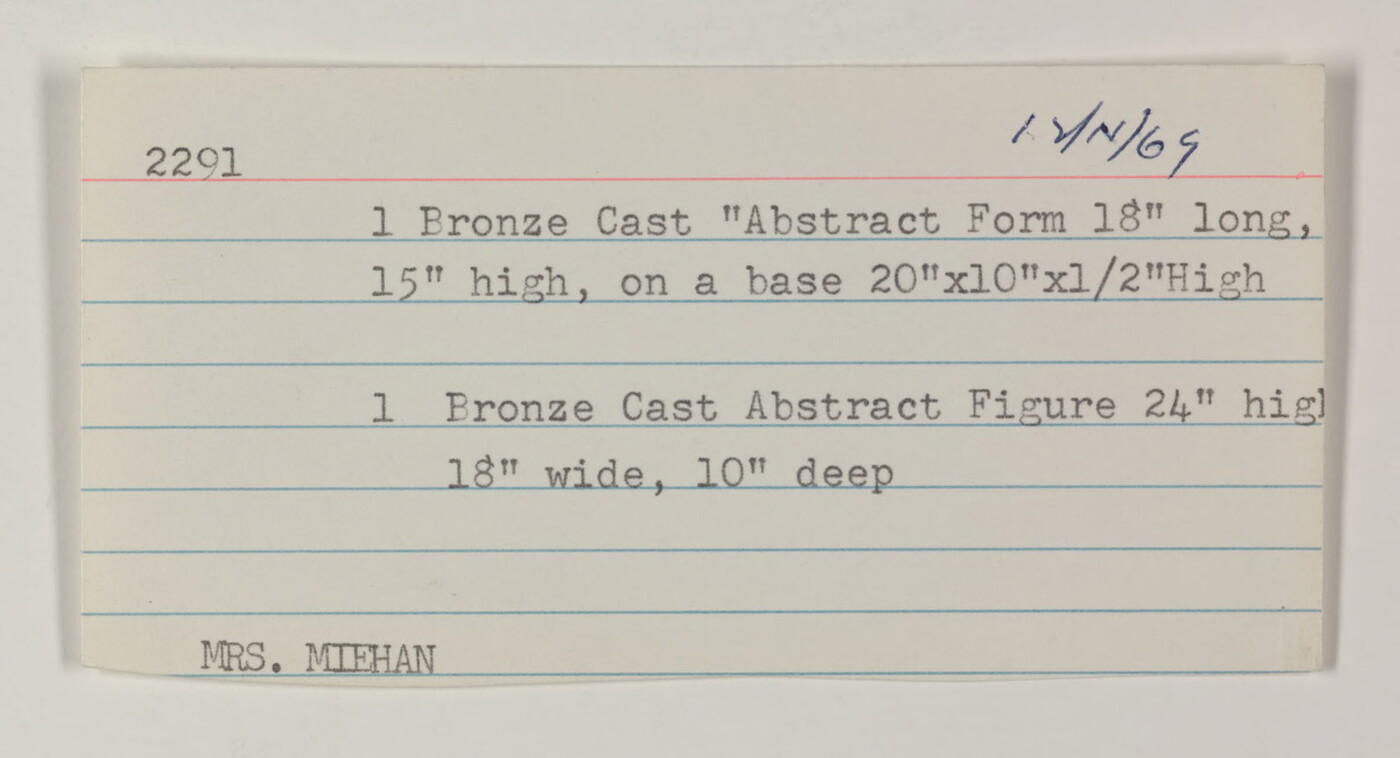 12/N/69
2291
1 Bronze Cast "Abstract Form 18" long,
15" high, on a base 20"x10"x1/2"High
1 Bronze Cast Abstract Figure 24" high
18" wide, 10" deep
MRS. MIEHAN